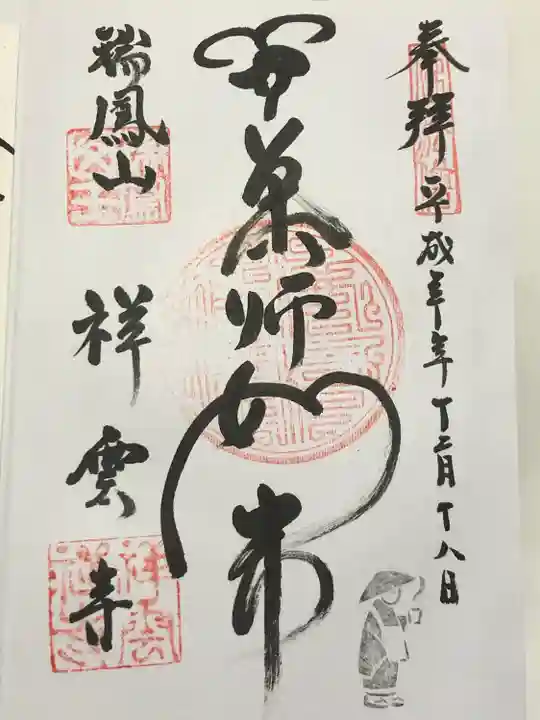 奉拝 平成 年 十二月十八日
薬師如来
瑞鳳山
祥雲寺